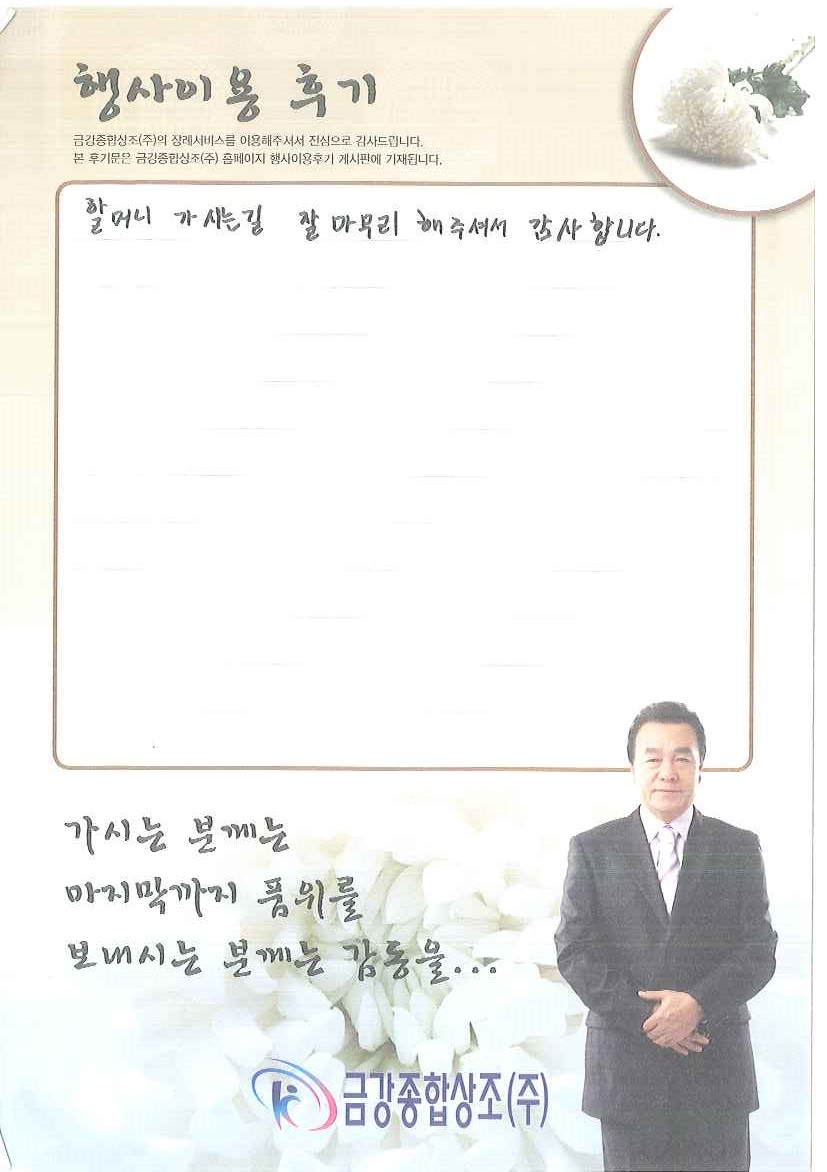 행사이용 후기
금강종합상조(주)의 장례서비스를 이용해주셔서 진심으로 감사드립니다.
본 후기문은 금강종합상조(주) 홈페이지 행사이용후기 게시판에 기재됩니다.
할머니 가시는길 잘 마무리 해주셔서 감사합니다.
가시는 분께는
마지막까지 품위를
보내시는 분께는 감동을...
금강종합상조(주)